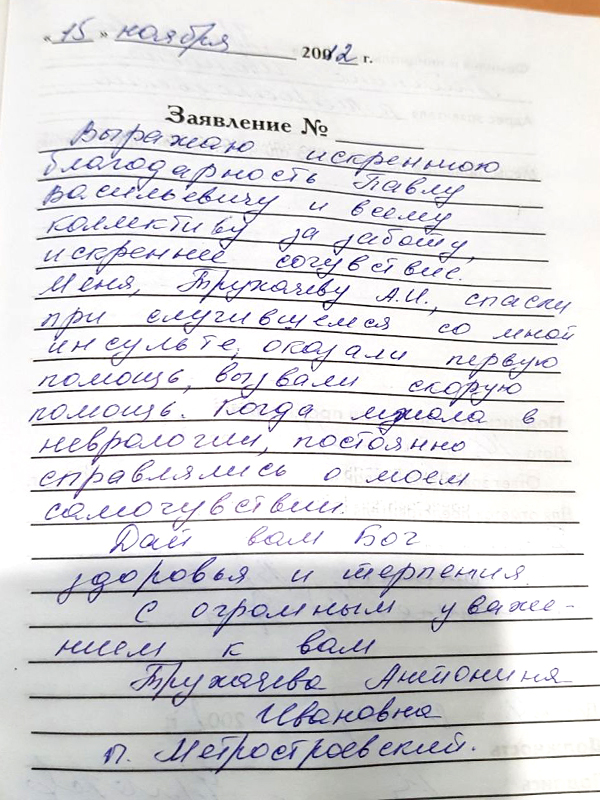 « 15 » ноября 2012 г.
Заявление №
Выражаю искреннюю
благодарность Павлу
Васильевичу и всему
коллективу за заботу,
искреннее сочувствие.
Меня, Трухачеву А.И., спасли
при случившемся со мной
инсульте, оказали первую
помощь, вызвали скорую
помощь. Когда лежала в
неврологии, постоянно
справлялись о моем
самочувствии.
Дай вам Бог
здоровья и терпения.
С огромным уваже-
нием к вам
Трухачева Антонина
Ивановна
п. Метростроевский.